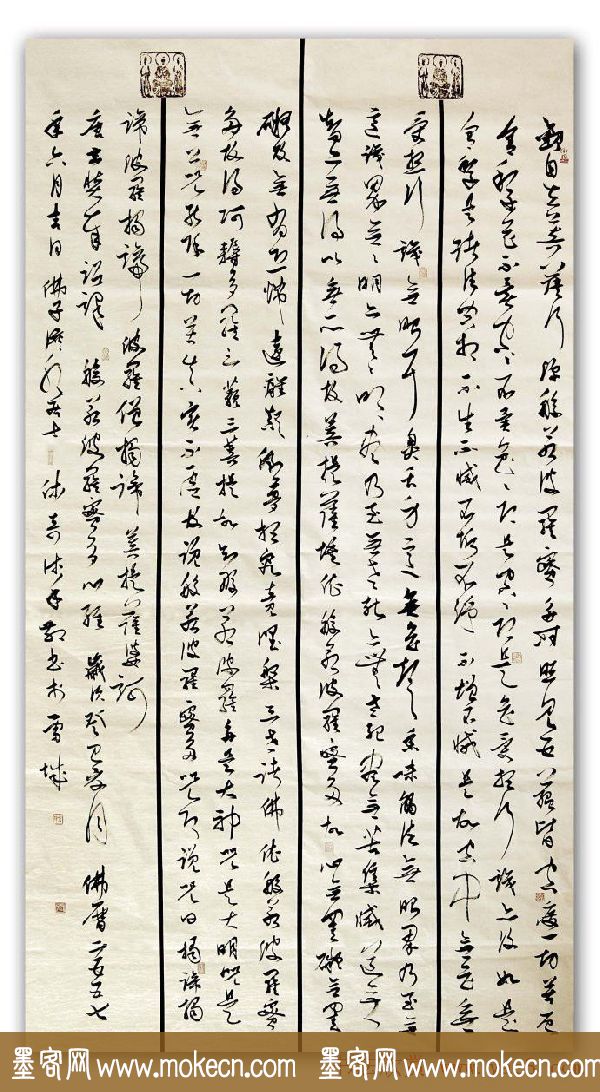 觀自在菩薩行深般若波羅蜜多時照見五蘊皆空度一切苦厄
舍利子色不異空空不異色色即是空空即是色受想行識亦復如是
舍利子是諸法空相不生不滅不垢不淨不增不減是故空中無色無
受想行識無眼耳鼻舌身意無色聲香味觸法無眼界乃至無
意識界無無明亦無無明盡乃至無老死亦無老死盡無苦集滅道無
智亦無得以無所得故菩提薩埵依般若波羅蜜多故心無罣礙無罣
礙故無有恐怖遠離顛倒夢想究竟涅槃三世諸佛依般若波羅蜜
多故得阿耨多羅三藐三菩提故知般若波羅蜜多是大神咒是大明咒是
無上咒能除一切苦真實不虛故說般若波羅蜜多咒即說咒曰揭諦揭
諦波羅揭諦波羅僧揭諦菩提薩婆訶
唐玄奘奉詔譯 般若波羅蜜多心經 歲次癸巳 佛曆二五五七
年六月吉日佛子 居士 敬書於 城
墨客网 www.mokecn.com 墨客网 www.mokecn.com